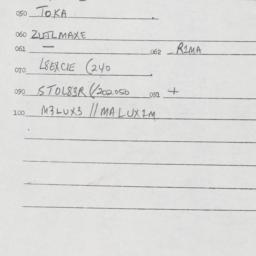 050 TOKA
060 ZUTLMAXE
061 — 062 R1MA
070 L8EXCIE (240
090 STOL83R (/202.050 091 +
100 M3LUX3 // MALUX1M